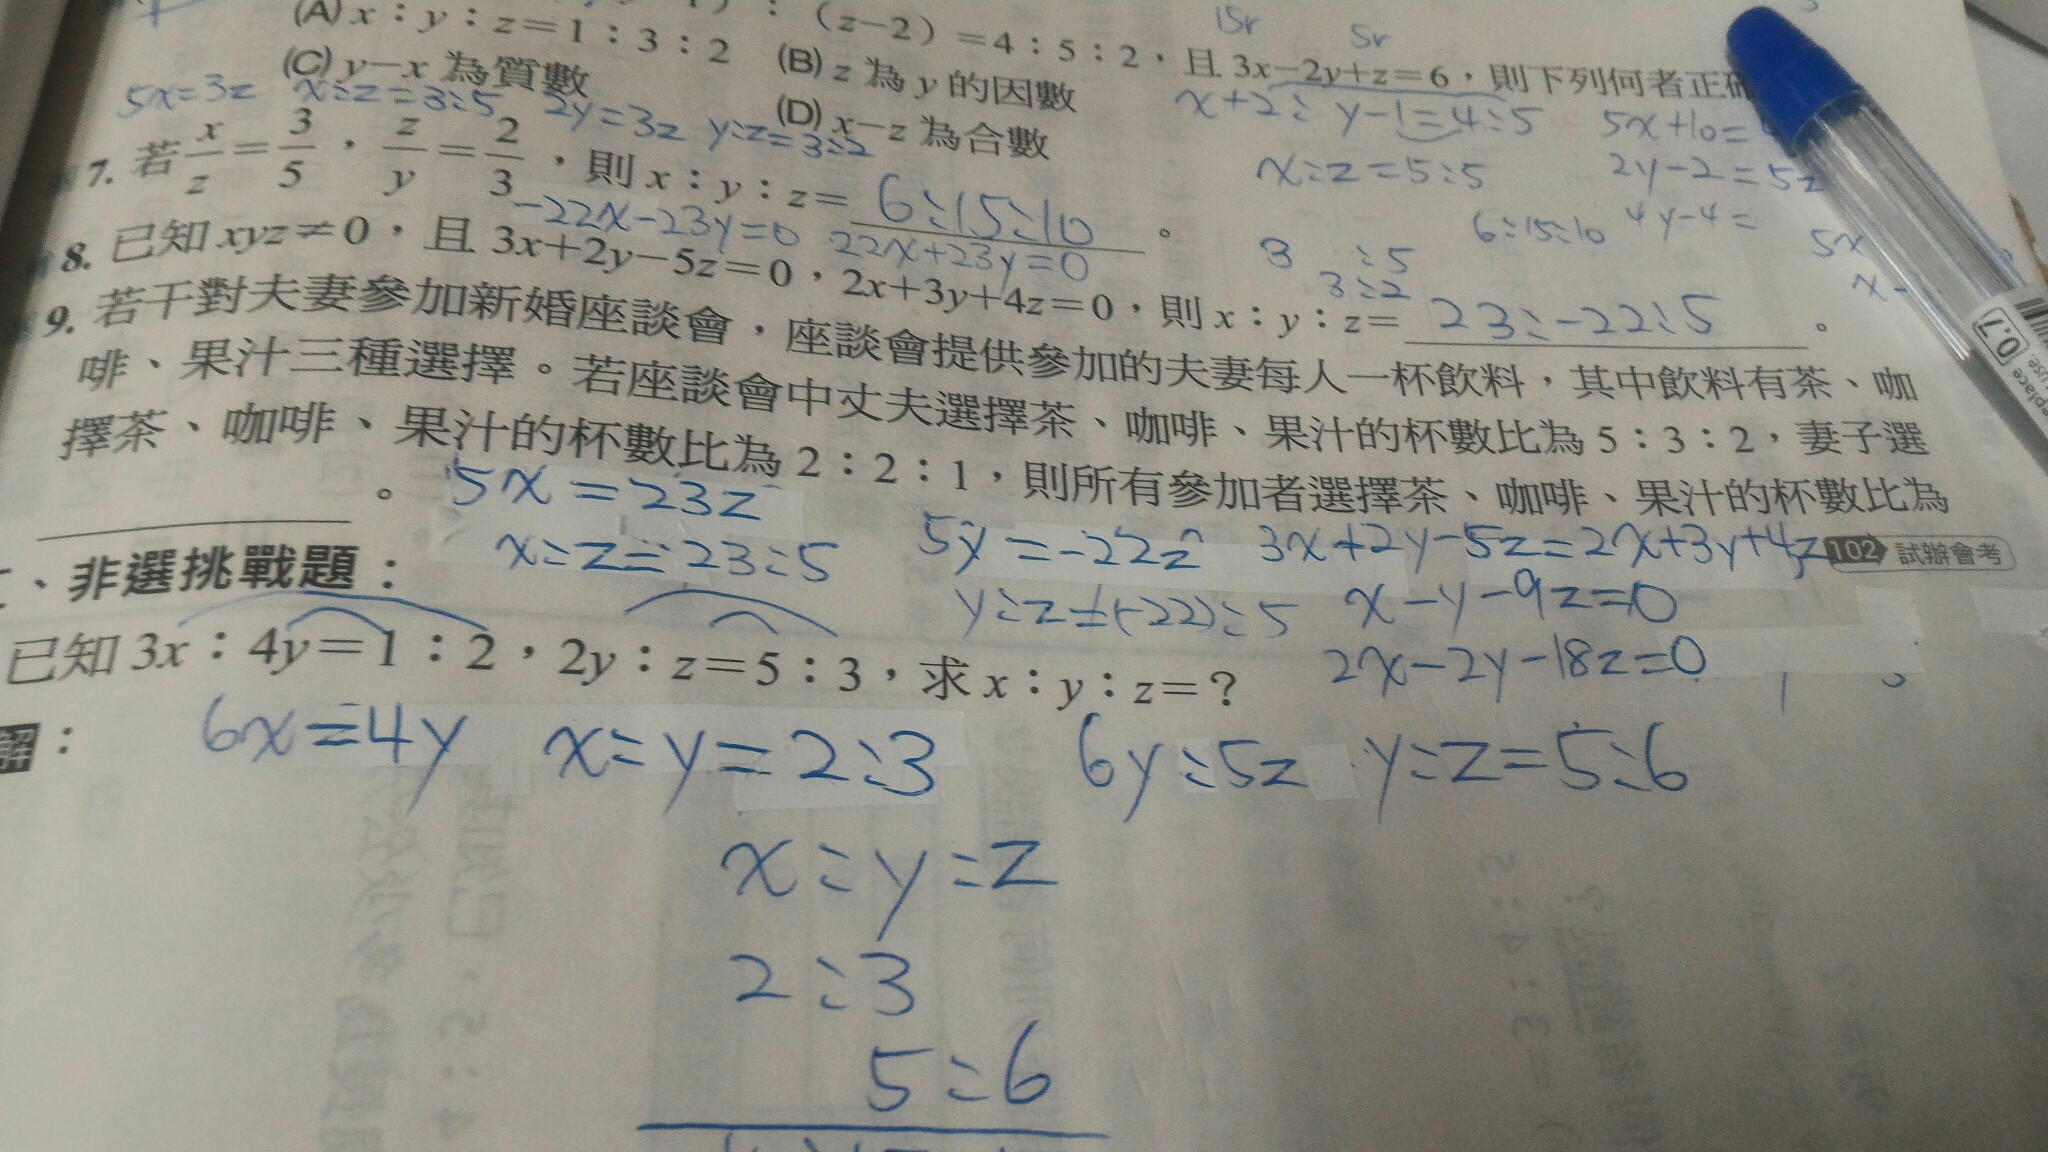 15r 5r
(z−2)=4:5:2，且 3x−2y+z=6，則下列何者正確
(A) x:y:z=1:3:2 (B) z 為 y 的因數
(C) y−x 為質數 (D) x−z 為合數
x+2:y-1=4:5 5x+10=
5x=3z x:z=3:5 2y=3z y:z=3:2
x:z=5:5 2y-2=5z
7. 若 x/z=3/5，z/y=2/3，則 x:y:z= 6:15:10 。
6:15:10 4y-4=
3 :5
3:2
-22x-23y=0 22x+23y=0
8. 已知 xyz≠0，且 3x+2y−5z=0，2x+3y+4z=0，則 x:y:z= 23:-22:5 。
9. 若干對夫妻參加新婚座談會，座談會提供參加的夫妻每人一杯飲料，其中飲料有茶、咖
啡、果汁三種選擇。若座談會中丈夫選擇茶、咖啡、果汁的杯數比為 5:3:2，妻子選
擇茶、咖啡、果汁的杯數比為 2:2:1，則所有參加者選擇茶、咖啡、果汁的杯數比為
。
102 試辦會考
5x=23z
x:z=23:5
5y=-22z
y:z=(-22):5
3x+2y-5z=2x+3y+4z
x-y-9z=0
2x-2y-18z=0
、非選挑戰題：
已知 3x:4y=1:2，2y:z=5:3，求 x:y:z=？
解：
6x=4y x:y=2:3 6y:5z y:z=5:6
x:y:z
2:3
5:6